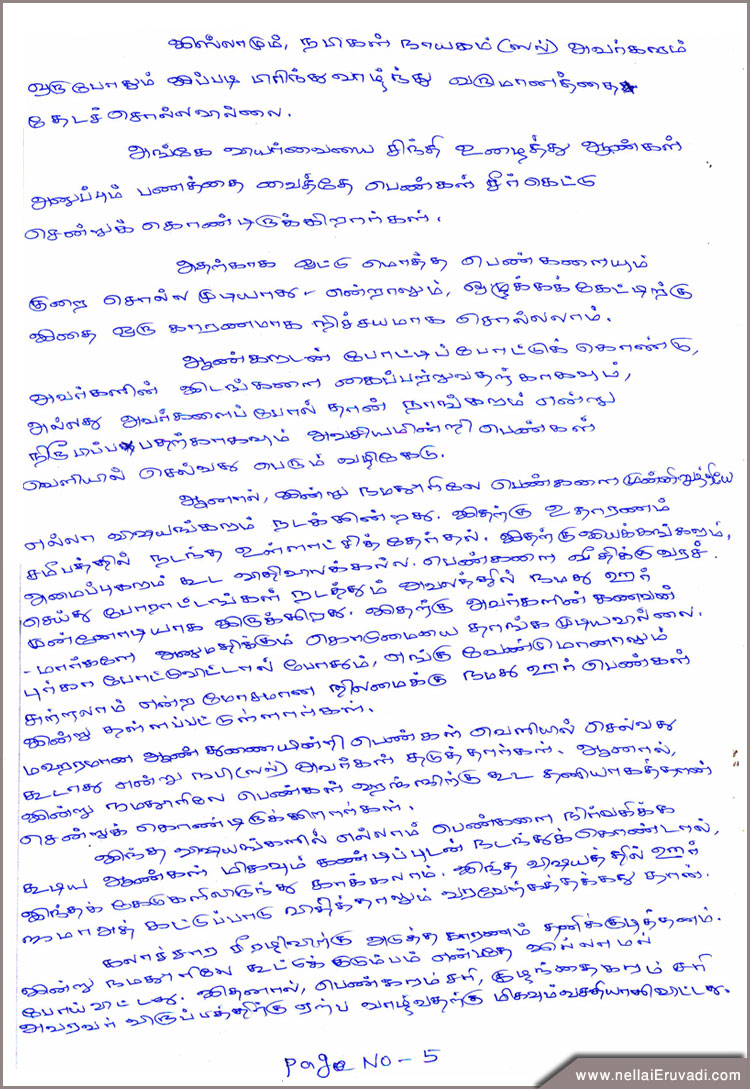 இஸ்லாமும், நபிகள் நாயகம் (ஸல்) அவர்களும்
ஒருபோதும் இப்படி பிரிந்து வாழ்ந்து வருமானத்தை
தேடச் சொல்லவில்லை.
அங்கே வியர்வையை சிந்தி உழைத்து ஆண்கள்
அனுப்பும் பணத்தை வைத்தே பெண்கள் சீர்கெட்டு
சென்றுக் கொண்டிருக்கிறார்கள்.
அதற்காக ஒட்டு மொத்த பெண்களையும்
குறை சொல்ல முடியாது - என்றாலும், ஒழுக்கக்கேட்டிற்கு
இதை ஒரு காரணமாக நிச்சயமாக சொல்லலாம்.
ஆண்களுடன் போட்டிப் போட்டுக் கொண்டு,
அவர்களின் இடங்களை கைப்பற்றுவதற்காகவும்,
அல்லது அவர்களைப் போல் தான் நாங்களும் என்று
நிரூபிப்பதற்காகவும் அவசியமின்றி பெண்கள்
வெளியில் செல்வது பெரும் வழிகேடு.
ஆனால், இன்று நமதூரிலே பெண்களை முன்னிறுத்தியே
எல்லா விஷயங்களும் நடக்கின்றது. இதற்கு உதாரணம்
சமீபத்தில் நடந்த உள்ளாட்சித் தேர்தல். இதற்கு இயக்கங்களும்,
அமைப்புகளும் கூட விதிவிலக்கல்ல. பெண்களை வீதிக்கு வரச்
செய்து போராட்டங்கள் நடத்தும் அவலத்தில் நமது ஊர்
முன்னோடியாக இருக்கிறது. இதற்கு அவர்களின் கணவன்
- மார்களே அனுமதிக்கும் கொடுமையை தாங்க முடியவில்லை.
புர்கா போட்டுவிட்டால் போதும், எங்கு வேண்டுமானாலும்
சுற்றலாம் என்ற மோசமான நிலமைக்கு நமது ஊர் பெண்கள்
இன்று தள்ளப்பட்டுள்ளார்கள்.
மஹரமான ஆண் துணையின்றி பெண்கள் வெளியில் செல்வது
கூடாது என்று நபி (ஸல்) அவர்கள் தடுத்தார்கள். ஆனால்,
இன்று நமதூரிலே பெண்கள் ஹஜ்ஜிற்கு கூட தனியாகத்தான்
சென்றுக் கொண்டிருக்கிறார்கள்.
இந்த விஷயங்களில் எல்லாம் பெண்களை நிர்வகிக்க
கூடிய ஆண்கள் மிகவும் கண்டிப்புடன் நடந்துக் கொண்டால்,
இந்தக் கேடுகளிலிருந்து காக்கலாம். இந்த விஷயத்தில் ஊர்
ஜமாஅத் கட்டுப்பாடு விதித்தாலும் வரவேற்கத்தக்கது தான்.
கலாச்சார சீரழிவிற்கு அடுத்த காரணம் தனிக்குடித்தனம்.
இன்று நமதூரிலே கூட்டுக் குடும்பம் என்பதே இல்லாமல்
போய் விட்டது. இதனால், பெண்களும் சரி, குழந்தைகளும் சரி
அவரவர் விருப்பத்திற்கு ஏற்ப வாழ்வதற்கு மிகவும் வசதியாகிவிட்டது.
Page No - 5
www.nellaiEruvadi.com